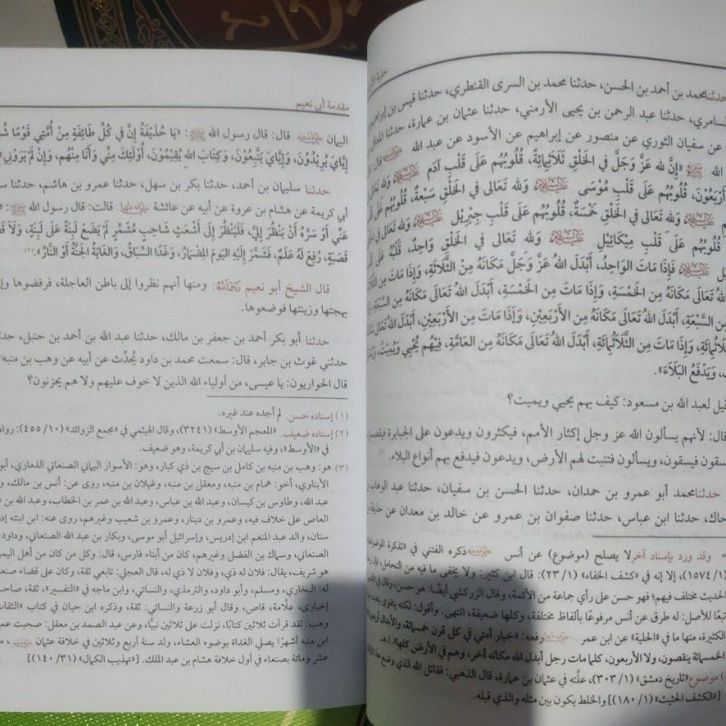 حدثنا محمد بن أحمد بن الحسن، حدثنا محمد بن السري القنطري، حدثنا قيس بن إبراهيم
السامري، حدثنا عبد الرحمن بن يحيى الأرمني، حدثنا عثمان بن عمارة، حدثنا
عن سفيان الثوري عن منصور عن إبراهيم عن الأسود عن عبد الله
الله ﷺ «إِنَّ لله عَزَّ وَجَلَّ فِي الْخَلْقِ ثَلَاثَمِائَةٍ، قُلُوبُهُمْ عَلَى قَلْبِ آدَمَ
أَرْبَعُونَ، قُلُوبُهُمْ عَلَى قَلْبِ مُوسَى وَلله تَعَالَى فِي الْخَلْقِ سَبْعَةٌ، قُلُوبُهُمْ عَلَى
وَلله تَعَالَى فِي الْخَلْقِ خَمْسَةٌ، قُلُوبُهُمْ عَلَى قَلْبِ جِبْرِيلَ
قُلُوبُهُمْ عَلَى قَلْبِ مِيكَائِيلَ وَلله تَعَالَى فِي الْخَلْقِ وَاحِدٌ، قَلْبُهُ عَلَى
فَإِذَا مَاتَ الوَاحِدُ، أَبْدَلَ اللهُ عَزَّ وَجَلَّ مَكَانَهُ مِنَ الثَّلَاثَةِ، وَإِذَا مَاتَ مِنَ
تَعَالَى مَكَانَهُ مِنَ الْخَمْسَةِ، وَإِذَا مَاتَ مِنَ الْخَمْسَةِ، أَبْدَلَ اللهُ تَعَالَى مَكَانَهُ مِنَ السَّبْعَةِ،
مِنَ السَّبْعَةِ، أَبْدَلَ اللهُ تَعَالَى مَكَانَهُ مِنَ الْأَرْبَعِينَ، وَإِذَا مَاتَ مِنَ الْأَرْبَعِينَ، أَبْدَلَ اللهُ تَعَالَى
الثَّلَاثِمِائَةِ، وَإِذَا مَاتَ مِنَ الثَّلَاثِمِائَةِ، أَبْدَلَ اللهُ تَعَالَى مَكَانَهُ مِنَ العَامَّةِ، فَبِهِمْ يُحْيِي وَيُمِيتُ،
وَيَدْفَعُ البَلَاءَ».
قيل لعبد الله بن مسعود: كيف بهم يحيي ويميت؟
قال: لأنهم يسألون الله عز وجل إكثار الأمم، فيكثرون ويدعون على الجبابرة
فيسقون، ويسألون فتنبت لهم الأرض، ويدعون فيدفع بهم أنواع البلاء.
حدثنا محمد أبو عمرو بن حمدان، حدثنا الحسن بن سفيان، حدثنا عبد الوهاب
حدثنا ابن عباس، حدثنا صفوان بن عمرو عن خالد بن معدان عن
وقد ورد بإسناد آخر لا يصلح (موضوع) عن أنس ذكره الفتني في «تذكرة
(١/ ١٥٧٤)، إلا إنه في «كشف الخفاء» (١/ ٢٣): قال ابن كثير: ولا يخفى ما فيه من التحامل،
الحديث مختلف فيهم؛ فهو حسن على رأي جماعة من الأئمة، وقال الزركشي أيضًا: هو حسن،
تبعًا للأصل: له طرق عن أنس مرفوعًا بألفاظ مختلفة، وكلها ضعيفة، انتهى. وأقول: لكنه يتقوى
الكثيرة، منها ما في «الحلية» عن ابن عمر رفعه: «خيار أمتي في كل قرن خمسمائة، والأبدال أربعون
الخمسمائة ينقصون، ولا الأربعون، كلما مات رجل أبدل الله مكانه آخر، وهم في الأرض كلها». اهـ.
موضوع «تاريخ دمشق» (١/ ٣٠٣)، علَّته في عثمان بن عمارة، قال الذهبي: فقاتل الله الذي وضع هذا
[«الكشف الحثيث» (١/ ١٨٠)] والخلط يكون بين مثله والذي قبله.
مقدمة أبي نعيم
اليمان قال: قال رسول الله ﷺ: «يَا حُذَيْفَةُ إِنَّ فِي كُلِّ طَائِفَةٍ مِنْ أُمَّتِي قَوْمًا
إِيَّايَ يُرِيدُونَ، وَإِيَّايَ يَتَّبِعُونَ، وَكِتَابَ اللهِ يُقِيمُونَ، أُولَئِكَ مِنِّي وَأَنَا مِنْهُمْ، وَإِنْ لَمْ يَرَوْنِي»
حدثنا سليمان بن أحمد، حدثنا بكر بن سهل، حدثنا عمرو بن هاشم، حدثنا
أبي كريمة عن هشام بن عروة عن أبيه عن عائشة قالت: قال رسول الله ﷺ:
عَنِّي أَوْ سَرَّهُ أَنْ يَنْظُرَ إِلَيَّ، فَلْيَنْظُرْ إِلَى أَشْعَثَ شَاحِبٍ مُشَمِّرٍ لَمْ يَضَعْ لَبِنَةً عَلَى لَبِنَةٍ، وَلَا
قَصَبَةٍ، رُفِعَ لَهُ عَلَمٌ، فَشَمَّرَ إِلَيْهِ اليَوْمَ المِضْمَارُ، وَغَدًا السِّبَاقُ، وَالغَايَةُ الجَنَّةُ أَوِ النَّارُ»
قال الشيخ أبو نعيم رَحِمَهُ اللهُ: ومنها أنهم نظروا إلى باطن العاجلة، فرفضوها
بهجتها وزينتها فوضعوها.
حدثنا أبو بكر أحمد بن جعفر بن مالك، حدثنا عبد الله بن أحمد بن حنبل،
حدثني غوث بن جابر، قال: سمعت محمد بن داود يُحدِّث عن أبيه عن وهب بن منبه
قال الحواريون: يا عيسى، من أولياء الله الذين لا خوف عليهم ولا هم يحزنون؟
(١) إسناده حسن. لم أجده عند غيره.
(٢) إسناده ضعيف. «المعجم الأوسط» (٣٢٤١)، وقال الهيثمي في «مجمع الزوائد» (١٠/ ٤٥٥):
في «الأوسط»، وفيه سليمان بن أبي كريمة، وهو ضعيف.
(٣) هو: وهب بن منبه بن كامل بن سيج بن ذي كبار، وهو: الأسوار اليماني الصنعاني الذماري،
الأبناوي، أخو: همام بن منبه، ومعقل بن منبه، وغيلان بن منبه، روى عن: أنس بن مالك،
عبد الله، وطاوس بن كيسان، وعبد الله بن عباس، وعبد الله بن عمر بن الخطاب، وعبد الله بن
العاص على خلاف فيه، وعمرو بن دينار، وعمرو بن شعيب وغيرهم، روى عنه: ابن ابنته إدريس
سنان، والد عبد المنعم ابن إدريس، وإسرائيل أبو موسى، وبكار بن عبد الله الصنعاني،
الصنعاني، وسماك بن الفضل وغيرهم، كان من أبناء فارس، قال: وكل من كان من أهل اليمن
هو شريف، يقال: فلان له ذي، وفلان لا ذي له، قال العجلي: تابعي ثقة، وكان على قضاء
له: البخاري، ومسلم، وأبو داود، والترمذي، والنسائي، وابن ماجه في «التفسير»، ثقة، صاحب
إخباري، علَّامة، قاص، وقال أبو زرعة والنسائي: ثقة، وذكره ابن حبان في كتاب «الثقات»
وهب: لقد قرأت ثلاثين كتابًا، نزلت على ثلاثين نبيًّا، وعن عبد الصمد بن معقل: صحبت عمي
ابن منبه أشهرًا يصلي الغداة بوضوء العشاء، ولد سنة أربع وثلاثين في خلافة عثمان
عشر ومائة بصنعاء في أول خلافة هشام بن عبد الملك. [«تهذيب الكمال» (٣١/ ١٤٠)]